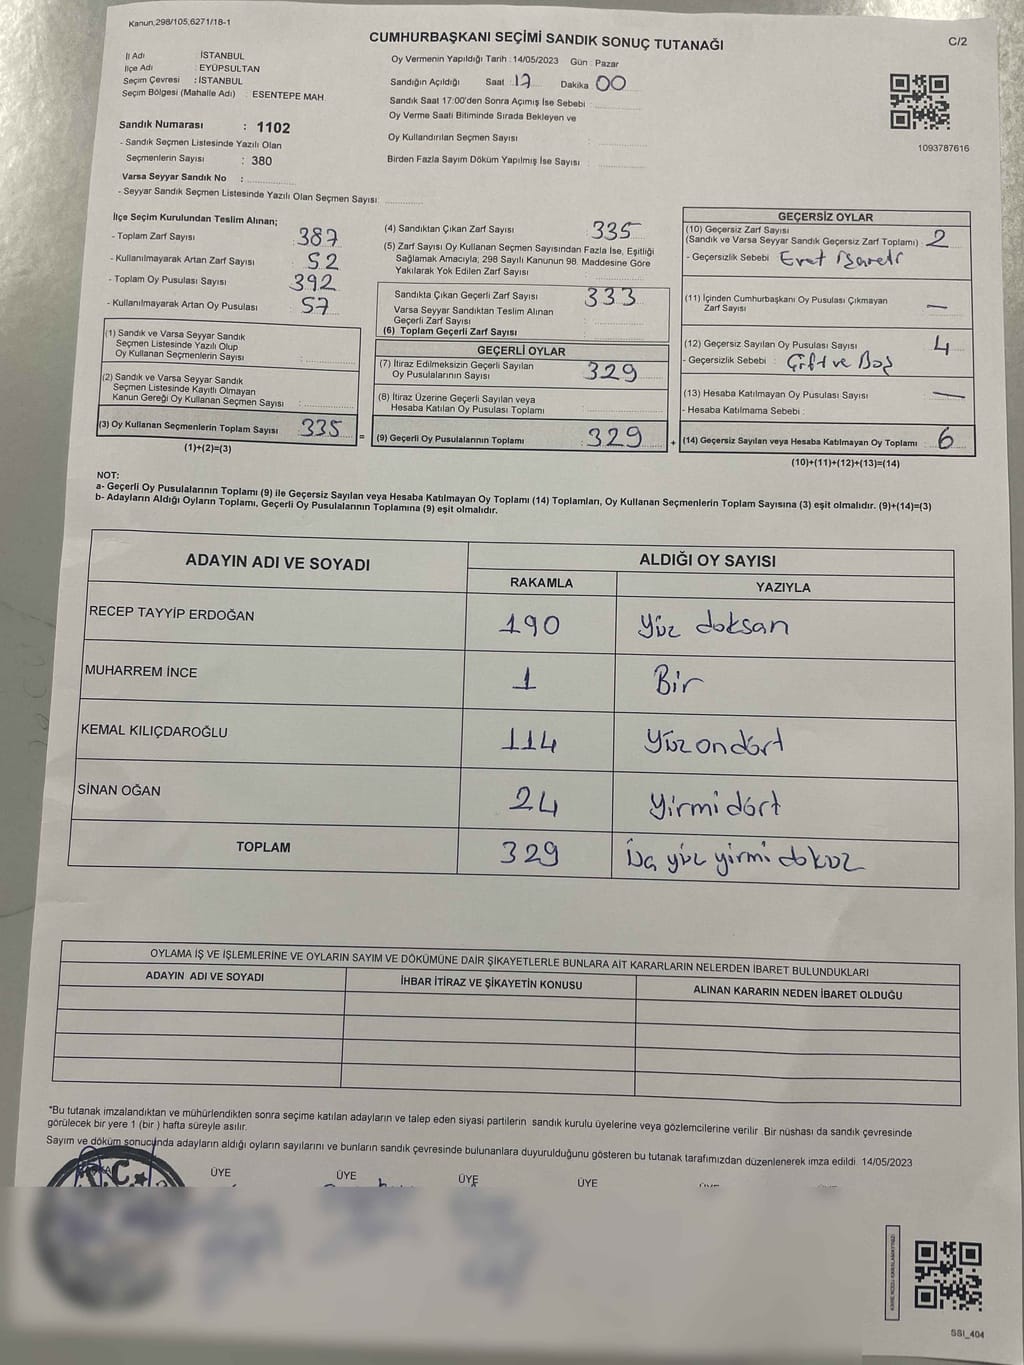 Kanun,298/105,6271/18-1
CUMHURBAŞKANI SEÇİMİ SANDIK SONUÇ TUTANAĞI
C/2
İl Adı İSTANBUL
İlçe Adı : EYÜPSULTAN
Seçim Çevresi : İSTANBUL
Seçim Bölgesi (Mahalle Adı) ESENTEPE MAH.
Oy Vermenin Yapıldığı Tarih : 14/05/2023 Gün : Pazar
Sandığın Açıldığı Saat : 17 Dakika 00
Sandık Saat 17:00'den Sonra Açımış İse Sebebi :
Oy Verme Saati Bitiminde Sırada Bekleyen ve
Oy Kullandırılan Seçmen Sayısı :
Birden Fazla Sayım Döküm Yapılmış İse Sayısı :
1093787616
Sandık Numarası : 1102
- Sandık Seçmen Listesinde Yazılı Olan
Seçmenlerin Sayısı : 380
Varsa Seyyar Sandık No :
- Seyyar Sandık Seçmen Listesinde Yazılı Olan Seçmen Sayısı:
İlçe Seçim Kurulundan Teslim Alınan;
- Toplam Zarf Sayısı 387
- Kullanılmayarak Artan Zarf Sayısı 52
- Toplam Oy Pusulası Sayısı 392
- Kullanılmayarak Artan Oy Pusulası 57
(1) Sandık ve Varsa Seyyar Sandık
Seçmen Listesinde Yazılı Olup
Oy Kullanan Seçmenlerin Sayısı :
(2) Sandık ve Varsa Seyyar Sandık
Seçmen Listesinde Kayıtlı Olmayan
Kanun Gereği Oy Kullanan Seçmen Sayısı :
(3) Oy Kullanan Seçmenlerin Toplam Sayısı : 335
(1)+(2)=(3)
(4) Sandıktan Çıkan Zarf Sayısı : 335
(5) Zarf Sayısı Oy Kullanan Seçmen Sayısından Fazla İse, Eşitliği
Sağlamak Amacıyla, 298 Sayılı Kanunun 98. Maddesine Göre
Yakılarak Yok Edilen Zarf Sayısı
Sandıkta Çıkan Geçerli Zarf Sayısı : 333
Varsa Seyyar Sandıktan Teslim Alınan
Geçerli Zarf Sayısı :
(6) Toplam Geçerli Zarf Sayısı :
GEÇERLİ OYLAR
(7) İtiraz Edilmeksizin Geçerli Sayılan
Oy Pusulalarının Sayısı : 329
(8) İtiraz Üzerine Geçerli Sayılan veya
Hesaba Katılan Oy Pusulası Toplamı :
= (9) Geçerli Oy Pusulalarının Toplamı : 329
GEÇERSİZ OYLAR
(10) Geçersiz Zarf Sayısı
(Sandık ve Varsa Seyyar Sandık Geçersiz Zarf Toplamı) : 2
- Geçersizlik Sebebi : Evet
(11) İçinden Cumhurbaşkanı Oy Pusulası Çıkmayan
Zarf Sayısı : —
(12) Geçersiz Sayılan Oy Pusulası Sayısı : 4
- Geçersizlik Sebebi : Çift ve Boş
(13) Hesaba Katılmayan Oy Pusulası Sayısı : —
- Hesaba Katılmama Sebebi :
+ (14) Geçersiz Sayılan veya Hesaba Katılmayan Oy Toplamı : 6
(10)+(11)+(12)+(13)=(14)
NOT:
a- Geçerli Oy Pusulalarının Toplamı (9) ile Geçersiz Sayılan veya Hesaba Katılmayan Oy Toplamı (14) Toplamları, Oy Kullanan Seçmenlerin Toplam Sayısına (3) eşit olmalıdır. (9)+(14)=(3)
b- Adayların Aldığı Oyların Toplamı, Geçerli Oy Pusulalarının Toplamına (9) eşit olmalıdır.
ADAYIN ADI VE SOYADI ALDIĞI OY SAYISI
RAKAMLA YAZIYLA
RECEP TAYYİP ERDOĞAN 190 Yüz doksan
MUHARREM İNCE 1 Bir
KEMAL KILIÇDAROĞLU 114 Yüz ondört
SİNAN OĞAN 24 Yirmi dört
TOPLAM 329 üç yüz yirmi dokuz
OYLAMA İŞ VE İŞLEMLERİNE VE OYLARIN SAYIM VE DÖKÜMÜNE DAİR ŞİKAYETLERLE BUNLARA AİT KARARLARIN NELERDEN İBARET BULUNDUKLARI
ADAYIN ADI VE SOYADI İHBAR İTİRAZ VE ŞİKAYETİN KONUSU ALINAN KARARIN NEDEN İBARET OLDUĞU
*Bu tutanak imzalandıktan ve mühürlendikten sonra seçime katılan adayların ve talep eden siyasi partilerin sandık kurulu üyelerine veya gözlemcilerine verilir. Bir nüshası da sandık çevresinde
görülecek bir yere 1 (bir ) hafta süreyle asılır.
Sayım ve döküm sonucunda adayların aldığı oyların sayılarını ve bunların sandık çevresinde bulunanlara duyurulduğunu gösteren bu tutanak tarafımızdan düzenlenerek imza edildi. 14/05/2023
ÜYE ÜYE ÜYE ÜYE
T.C.
SSI_404